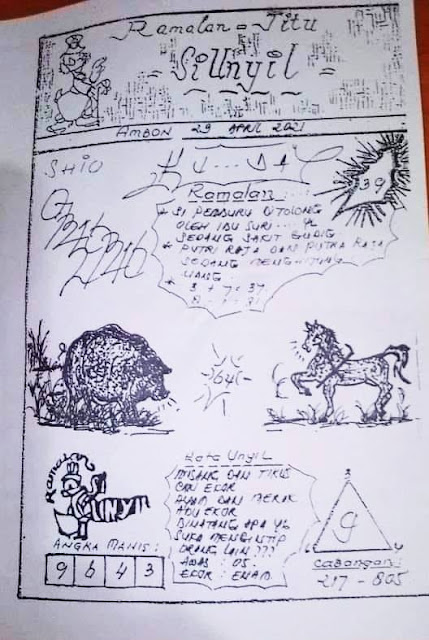 Ramalan = Jitu
= SiUnyil =
AMBON 29 APRIL 2021
SHIO
39
Ramalan :
* SI PEMBURU DITOLONG
OLEH IBU SURI ... YG
SEDANG SAKIT GUDIG
* PUTRI RAJA DAN PUTRA RAJA
SEDANG MENGHITUNG
UANG
* 3 + 7 = 37
64
Ramalan
UNYIL
ANGKA MANIS :
9 6 4 3
Kata Unyil
MUSANG DAN TIKUS
DAN EKOR
AYAM DAN MERAK
ADU EKOR
BINATANG APA YG
SUKA MENGINTIP
ORANG LAIN ???
AWAS : 05.
EKOR : ENAM
3
9
Cabangan :
217 - 805